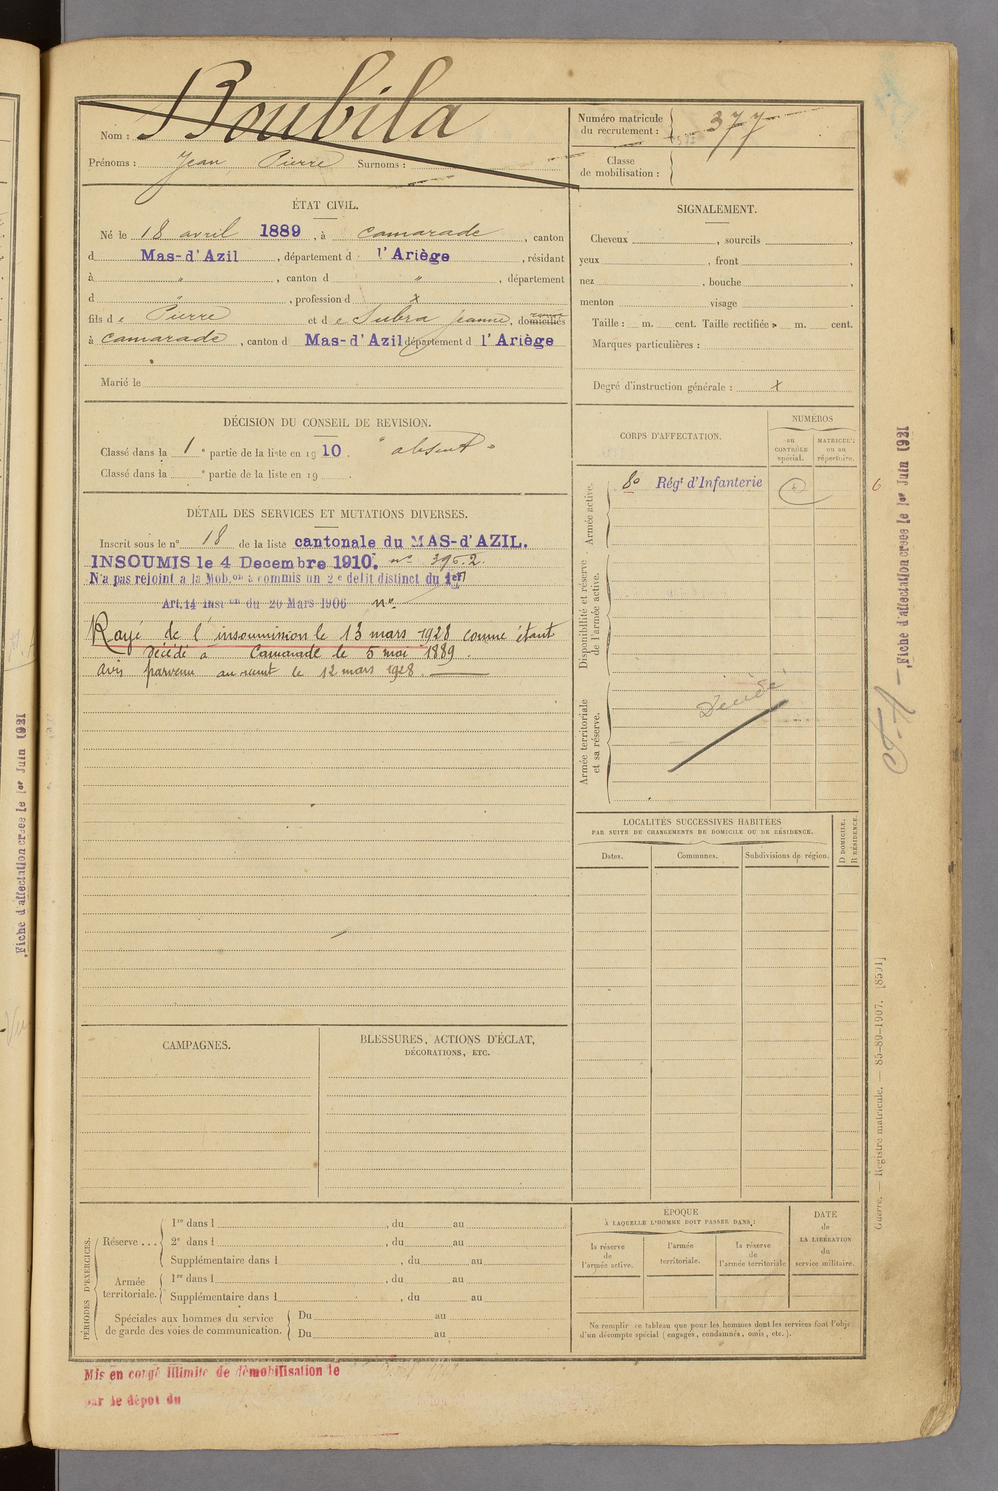 Nom : Boubila
Prénoms : Jean Pierre Surnoms :
Numéro matricule
du recrutement : 377
Classe
de mobilisation :
ÉTAT CIVIL.
Né le 18 avril 1889, à camarade, canton
d Mas-d'Azil, département d l'Ariège, résidant
à " , canton d " , département
d " , profession d x
fils de Pierre et de Subra Jeanne, domiciliés
à camarade, canton d Mas-d'Azil département d l'Ariège
Marié le
SIGNALEMENT.
Cheveux , sourcils ,
yeux , front ,
nez , bouche ,
menton visage
Taille : m. cent. Taille rectifiée m. cent.
Marques particulières :
Degré d'instruction générale : x
DÉCISION DU CONSEIL DE REVISION.
Classé dans la 1 e partie de la liste en 1910. " absent "
Classé dans la e partie de la liste en 19 .
DÉTAIL DES SERVICES ET MUTATIONS DIVERSES.
Inscrit sous le n° 18 de la liste cantonale du MAS-d'AZIL.
INSOUMIS le 4 Decembre 1910. n°
N'a pas rejoint a la Mob.on a commis un 2e delit distinct du 1er
Art. 14 Inst.on du 20 Mars 1906 n°
Rayé de l'insoumission le 13 mars 1928 comme étant
décédé à Camarade le 5 mai 1889.
avis parvenu au recrut le 12 mars 1928.
CORPS D'AFFECTATION.
NUMÉROS
AU
CONTRÔLE
spécial.
MATRICULE
OU AU
répertoire.
Armée active.
8e Régt d'Infanterie
Disponibilité et réserve
de l'armée active.
Armée territoriale
et sa réserve.
Décédé
LOCALITÉS SUCCESSIVES HABITÉES
PAR SUITE DE CHANGEMENTS DE DOMICILE OU DE RÉSIDENCE.
Dates.
Communes.
Subdivisions de région.
D DOMICILE.
R RÉSIDENCE.
CAMPAGNES.
BLESSURES, ACTIONS D'ÉCLAT,
DÉCORATIONS, ETC.
PÉRIODES D'EXERCICES.
Réserve ...
1re dans l , du au
2e dans l , du au
Supplémentaire dans l , du au
Armée
territoriale.
1re dans l , du au
Supplémentaire dans l , du au
Spéciales aux hommes du service
de garde des voies de communication.
Du au
Du au
ÉPOQUE
À LAQUELLE L'HOMME DOIT PASSER DANS :
la réserve
de
l'armée active.
l'armée
territoriale.
la réserve
de
l'armée territoriale
DATE
de
LA LIBÉRATION
du
service militaire.
Ne remplir ce tableau que pour les hommes dont les services font l'objet
d'un décompte spécial (engagés, condamnés, omis, etc.).
Mis en congé illimité de démobilisation le
par le dépôt du
Fiche d'affectation créée le 1er Juin 1921
6
Guerre. — Registre matricule. — 85-89-1907. [8591]
Fiche d'affectation créée le 1er Juin 1921